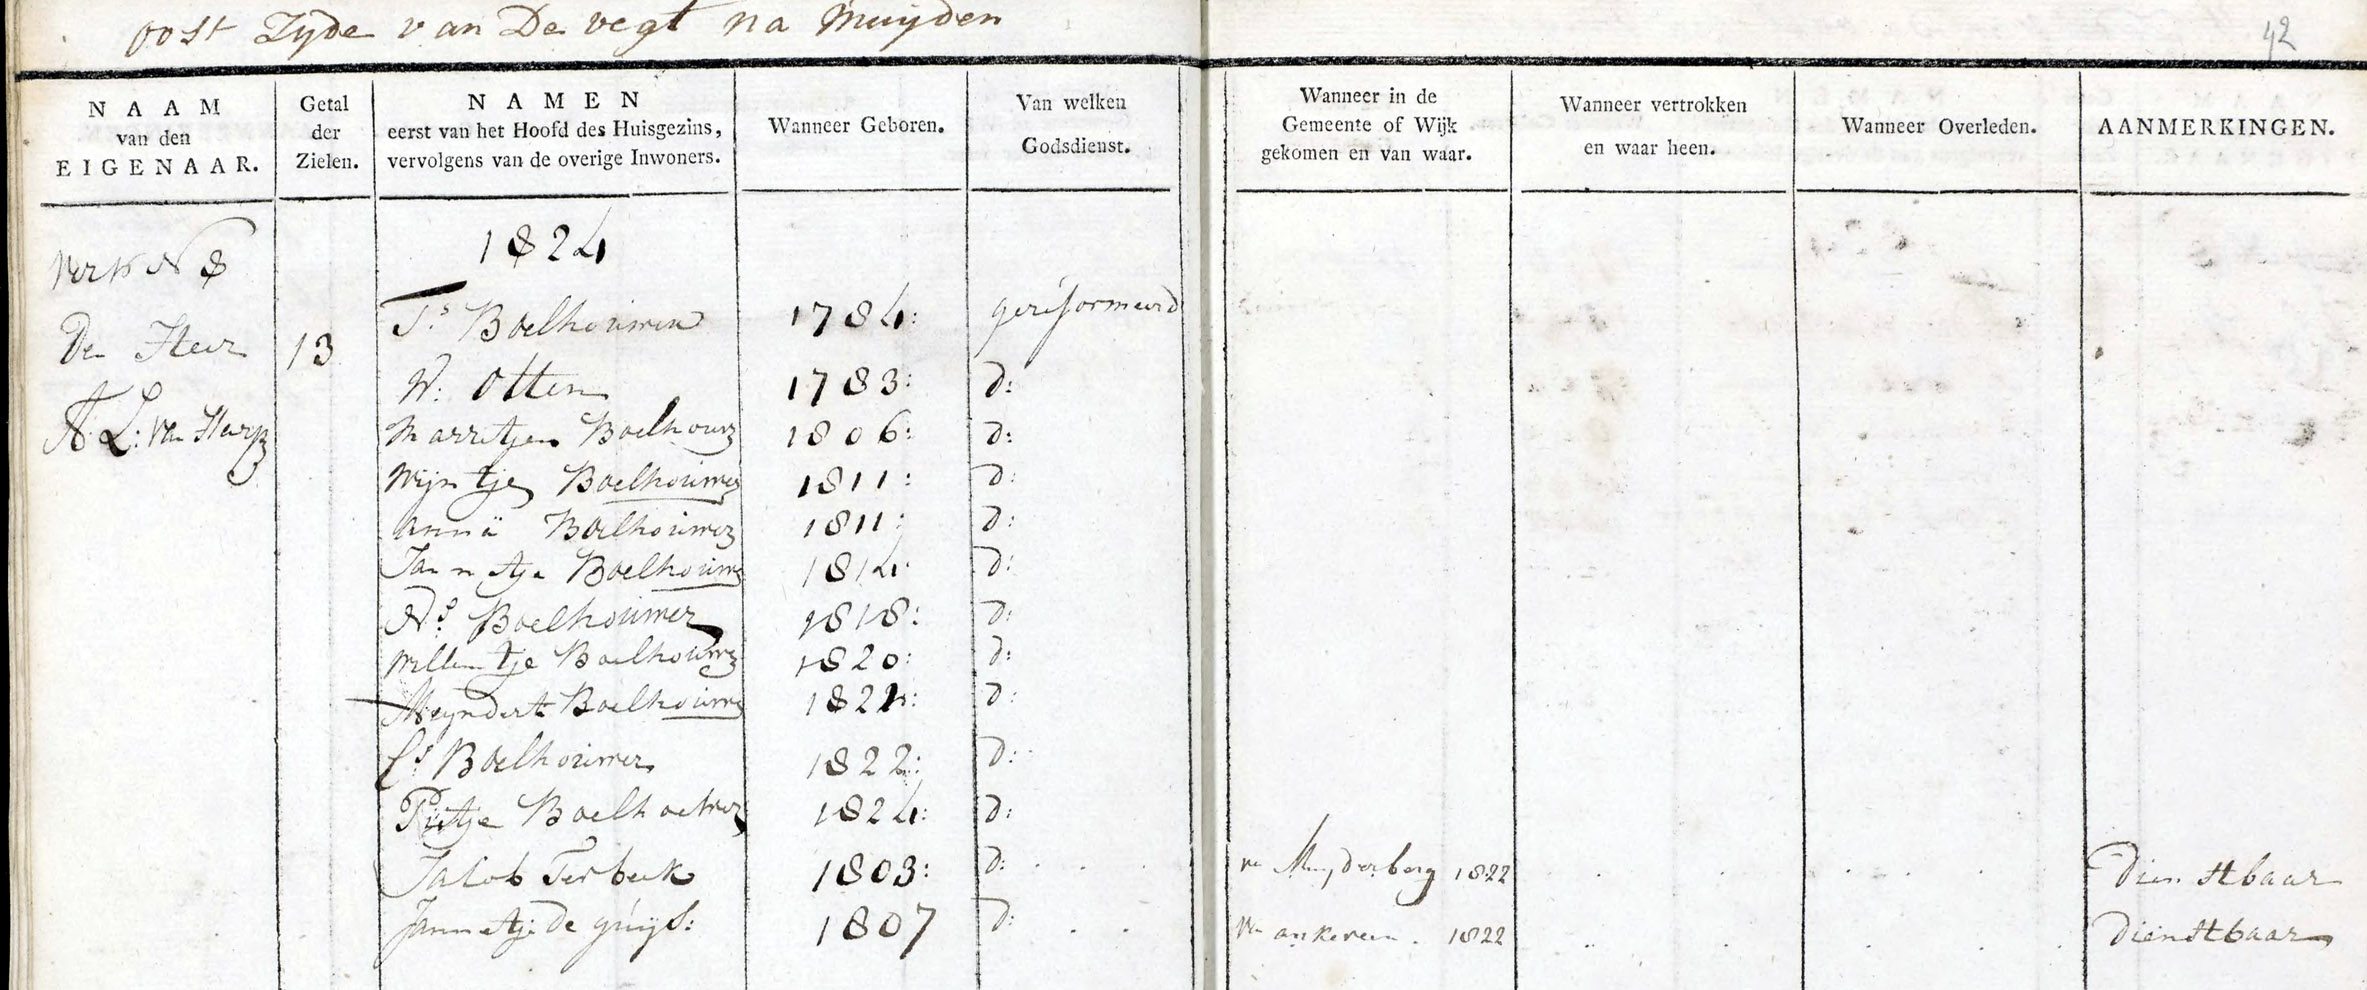 oost Zyde van De vegt na Muijden
42
NAAM
van den
EIGENAAR.
Getal
der
Zielen.
NAMEN
eerst van het Hoofd des Huisgezins,
vervolgens van de overige Inwoners.
Wanneer Geboren.
Van welken
Godsdienst.
Wanneer in de
Gemeente of Wijk
gekomen en van waar.
Wanneer vertrokken
en waar heen.
Wanneer Overleden.
AANMERKINGEN.
1824
N 8
De Heer 13 Boelhouwer 1784: gereformeerd
W: Otten 1783: d:
A: L: van Marritjen Boelhouwer 1806: d:
Wijntje Boelhouwer 1811: d:
anna Boelhouwer 1811: d:
Jannetje Boelhouwer 1814: d:
As. Boelhouwer 1818: d:
Willemtje Boelhouwer 1820: d:
Meyndert Boelhouwer d:
Cs. Boelhouwer 1822: d:
Pietje Boelhoewer 1824: d:
Jacob Terbeek 1803: d: van Muyderberg 1822 Dienstbaar
Jannetje de 1807 d: van ankeveen. 1822 Dienstbaar